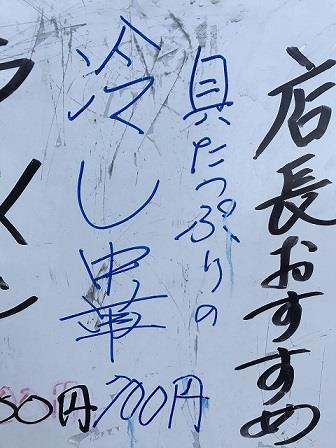 店長おすすめ
具たっぷりの
冷し中華
700円
50円